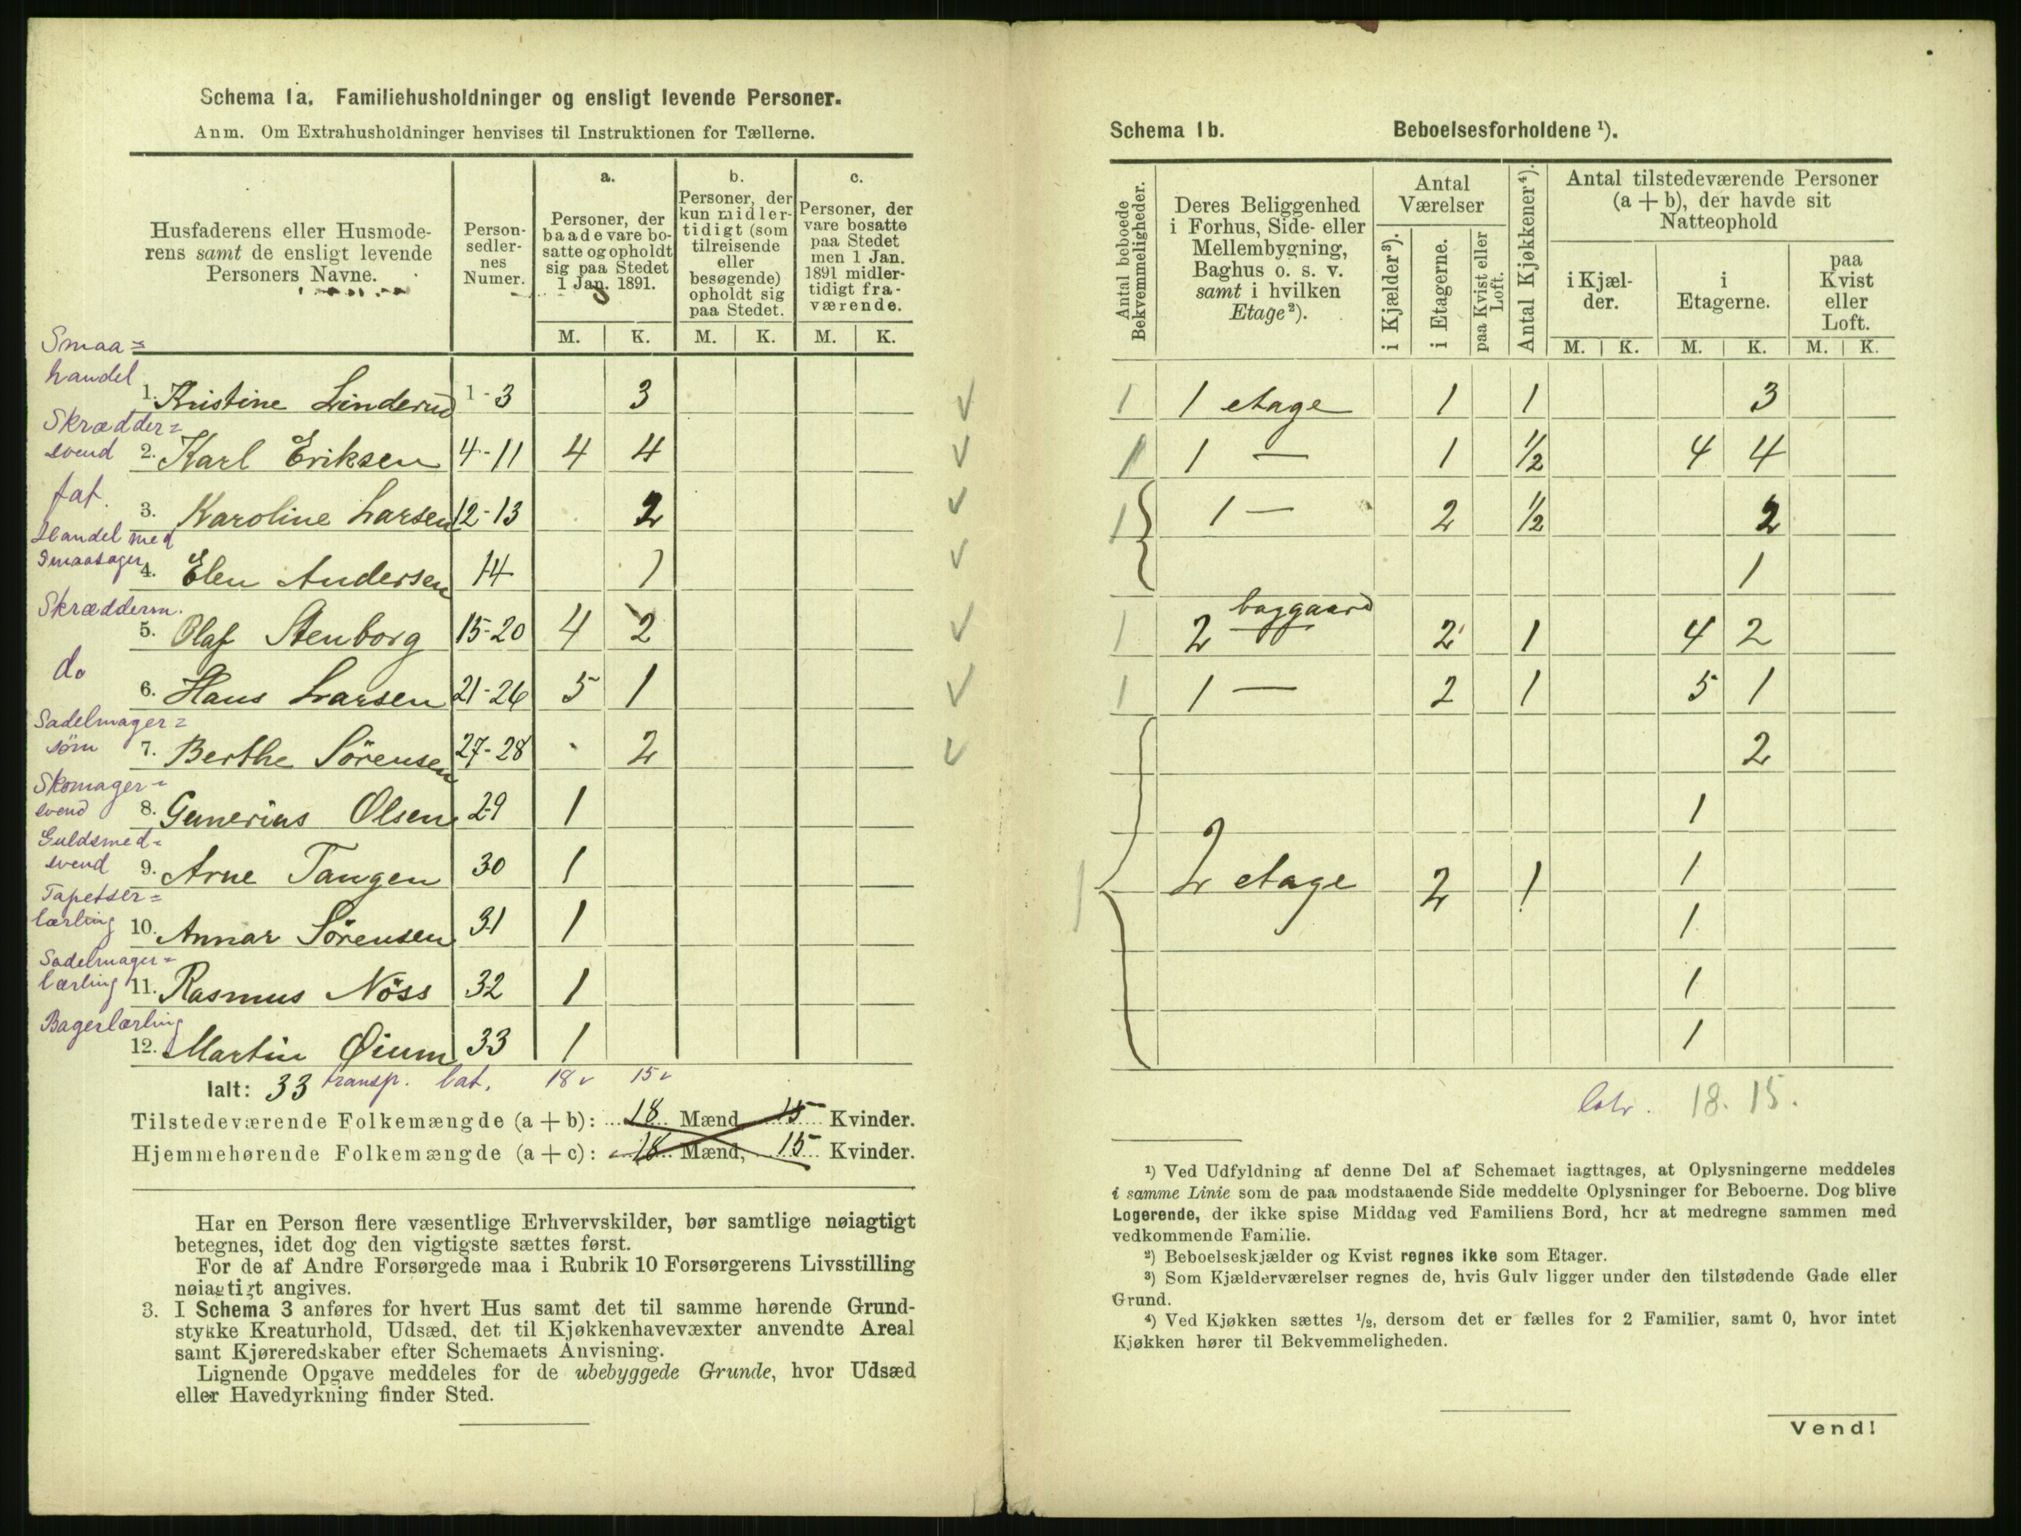 Schema 1a. Familiehusholdninger og ensligt levende Personer.
Anm. Om Extrahusholdninger henvises til Instruktionen for Tællerne.
Husfaderens eller Husmode-
rens samt de ensligt levende
Personers Navne.
Person-
sedler-
nes
Numer.
a.
Personer, der
baade vare bo-
satte og opholdt
sig paa Stedet
1 Jan. 1891.
b.
Personer, der
kun midler-
tidigt (som
tilreisende
eller
besøgende)
opholdt sig
paa Stedet.
c.
Personer, der
vare bosatte
paa Stedet
men 1 Jan.
1891 midler-
tidigt fra-
værende.
M. K. M. K. M. K.
Smaa=
handel
1. Kristine Linderud 1-3 3
Skrædder=
svend
2. Karl Eriksen 4-11 4 4
faf.
3. Karoline Larsen 12-13 2
Handel med
Smaasager
4. Elen Andersen 14 1
Skrædderm.
5. Olaf Stenborg 15-20 4 2
do
6. Hans Larsen 21-26 5 1
Sadelmager=
søm
7. Berthe Sörensen 27-28 2
Skomager=
svend
8. Gunerius Olsen 29 1
Guldsmed=
svend
9. Arne Tangen 30 1
Tapetser=
lærling
10. Annar Sörensen 31 1
Sadelmager=
lærling
11. Rasmus Nöss 32 1
Bagerlærling
12. Martin Øium 33 1
Ialt: 33 transp. lat. 18 15
Tilstedeværende Folkemængde (a + b): 18 Mænd, 15 Kvinder.
Hjemmehørende Folkemængde (a + c): 18 Mænd, 15 Kvinder.
Har en Person flere væsentlige Erhvervskilder, bør samtlige nøiagtigt
betegnes, idet dog den vigtigste sættes først.
For de af Andre Forsørgede maa i Rubrik 10 Forsørgerens Livsstilling
nøiagtigt angives.
3. I Schema 3 anføres for hvert Hus samt det til samme hørende Grund-
stykke Kreaturhold, Udsæd, det til Kjøkkenhavevæxter anvendte Areal
samt Kjøreredskaber efter Schemaets Anvisning.
Lignende Opgave meddeles for de ubebyggede Grunde, hvor Udsæd
eller Havedyrkning finder Sted.
Schema 1b. Beboelsesforholdene ¹).
Antal beboede
Bekvemmeligheder.
Deres Beliggenhed
i Forhus, Side- eller
Mellembygning,
Baghus o. s. v.
samt i hvilken
Etage²).
Antal
Værelser
i Kjælder³).
i Etagerne.
paa Kvist eller
Loft.
Antal Kjøkkener⁴).
Antal tilstedeværende Personer
(a + b), der havde sit
Natteophold
i Kjæl-
der.
i
Etagerne.
paa
Kvist
eller
Loft.
M. K. M. K. M. K.
1 1 etage 1 1 3
1 1 — 1 ½ 4 4
1 1 — 2 ½ 2
1
1 2 baggaard 2 1 4 2
1 1 — 2 1 5 1
2
1
1 2 etage 2 1 1
1
1
1
latr. 18. 15.
¹) Ved Udfyldning af denne Del af Schemaet iagttages, at Oplysningerne meddeles
i samme Linie som de paa modstaaende Side meddelte Oplysninger for Beboerne. Dog blive
Logerende, der ikke spise Middag ved Familiens Bord, her at medregne sammen med
vedkommende Familie.
²) Beboelseskjælder og Kvist regnes ikke som Etager.
³) Som Kjælderværelser regnes de, hvis Gulv ligger under den tilstødende Gade eller
Grund.
⁴) Ved Kjøkken sættes ½, dersom det er fælles for 2 Familier, samt 0, hvor intet
Kjøkken hører til Bekvemmeligheden.
Vend!